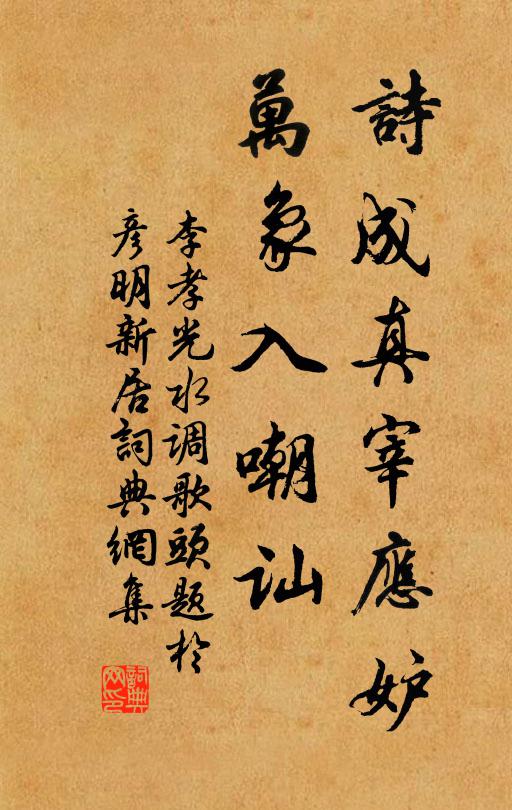 詩成真宰應妒
萬象入嘲讪
李孝光水调歌頭題於
彦明新居詞典網集
詞典網印